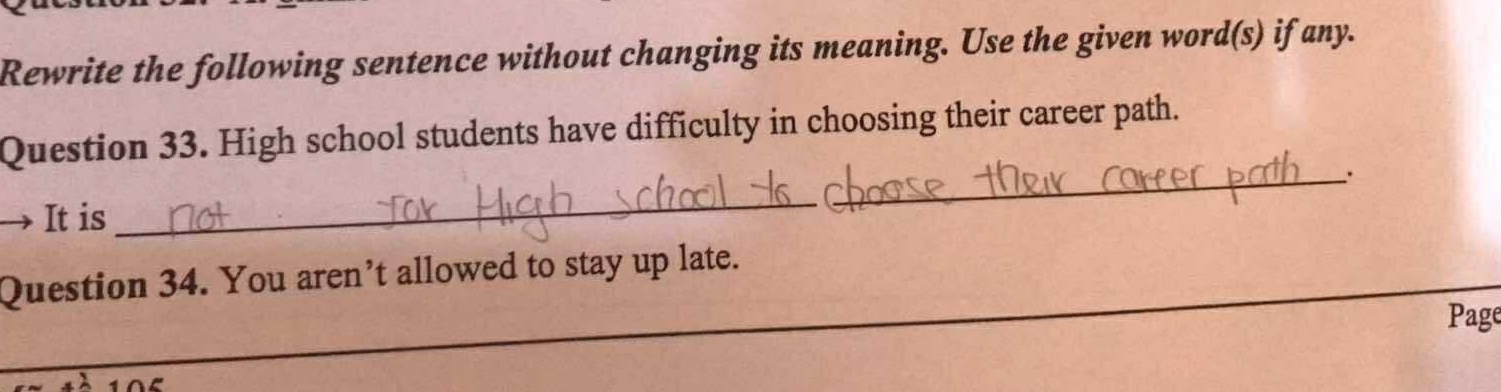 Rewrite the following sentence without changing its meaning. Use the given word(s) if any.
Question 33. High school students have difficulty in choosing their career path.
→ It is not for High school to choose their career path.
Question 34. You aren't allowed to stay up late.
Page
105